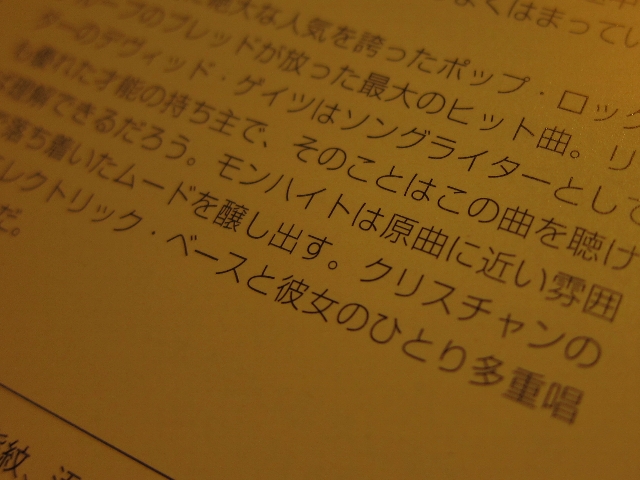 よくはまってい
絶大な人気を誇ったポップ・ロック
グループのブレッドが放った最大のヒット曲。リ
ダーのデヴィッド・ゲイツはソングライターとして
も優れた才能の持ち主で、そのことはこの曲を聴け
ば理解できるだろう。モンハイトは原曲に近い雰囲
落ち着いたムードを醸し出す。クリスチャンの
エレクトリック・ベースと彼女のひとり多重唱
だ。
紋、